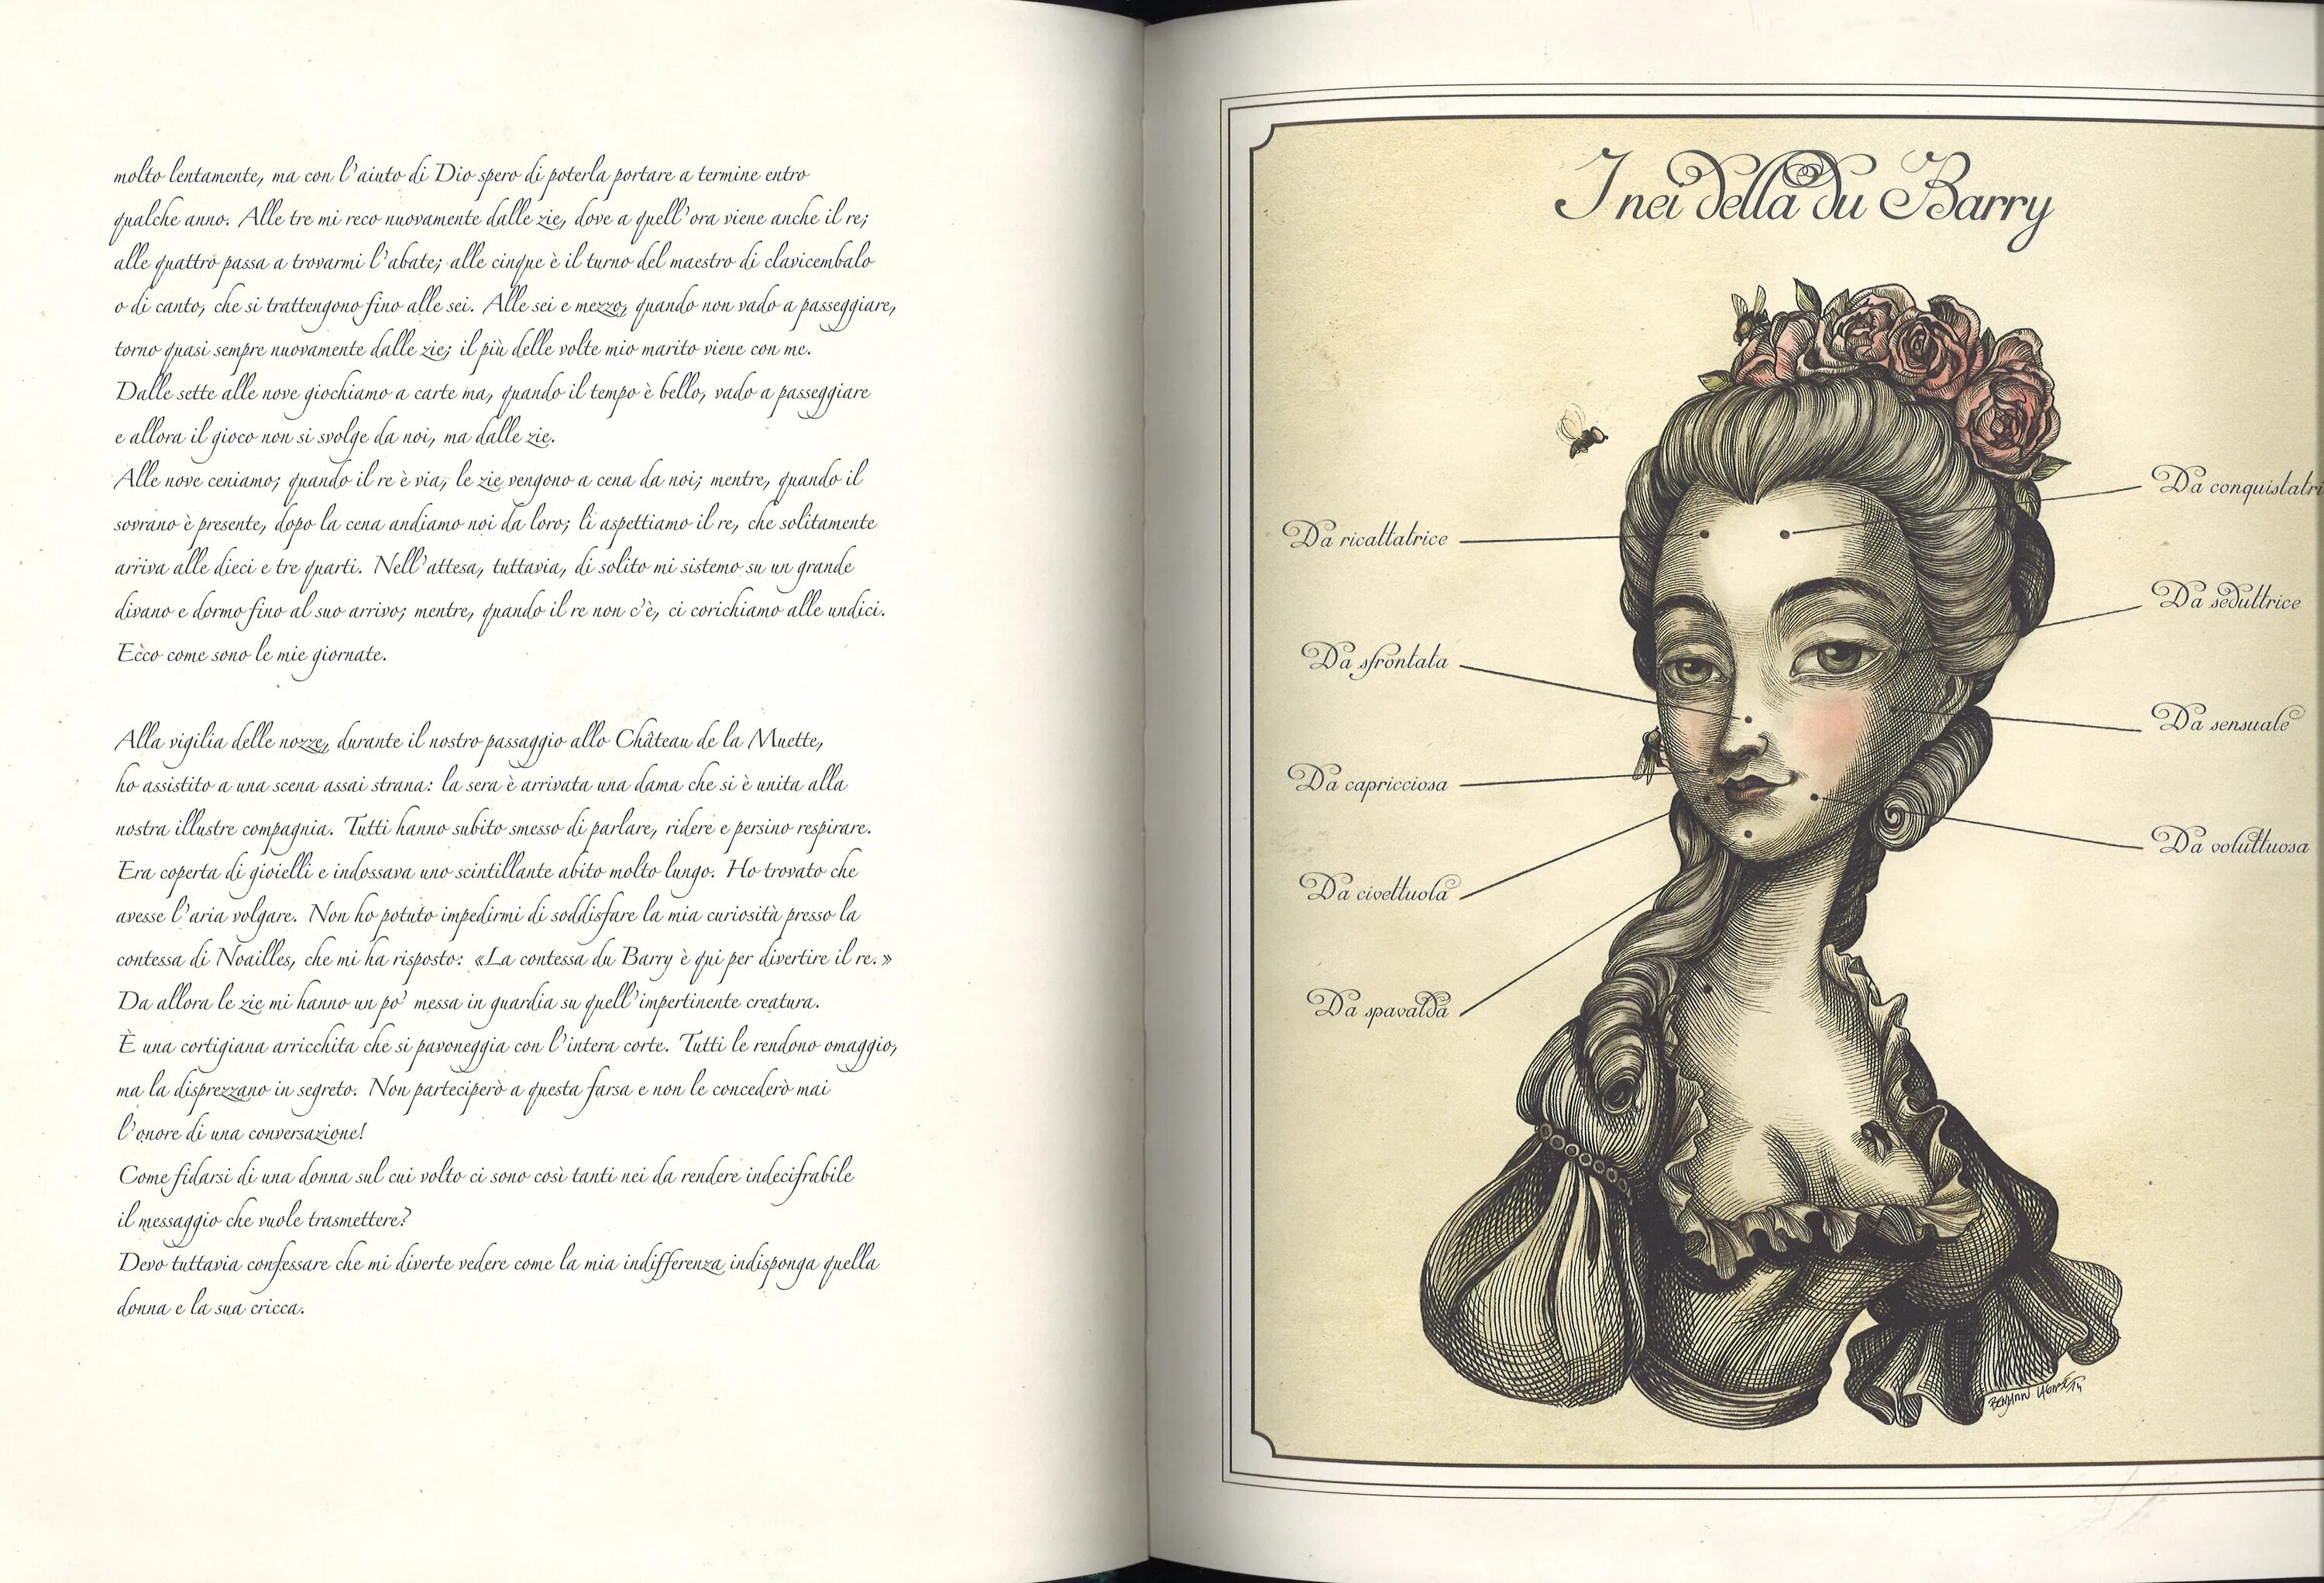 molto lentamente, ma con l'aiuto di Dio spero di poterla portare a termine entro
qualche anno. Alle tre mi reco nuovamente dalle zie, dove a quell'ora viene anche il re;
alle quattro passa a trovarmi l'abate; alle cinque è il turno del maestro di clavicembalo
o di canto, che si trattengono fino alle sei. Alle sei e mezzo, quando non vado a passeggiare,
torno quasi sempre nuovamente dalle zie; il più delle volte mio marito viene con me.
Dalle sette alle nove giochiamo a carte ma, quando il tempo è bello, vado a passeggiare
e allora il gioco non si svolge da noi, ma dalle zie.
Alle nove ceniamo; quando il re è via, le zie vengono a cena da noi; mentre, quando il
sovrano è presente, dopo la cena andiamo noi da loro; lì aspettiamo il re, che solitamente
arriva alle dieci e tre quarti. Nell'attesa, tuttavia, di solito mi sistemo su un grande
divano e dormo fino al suo arrivo; mentre, quando il re non c'è, ci corichiamo alle undici.
Ecco come sono le mie giornate.
Alla vigilia delle nozze, durante il nostro passaggio allo Château de la Muette,
ho assistito a una scena assai strana: la sera è arrivata una dama che si è unita alla
nostra illustre compagnia. Tutti hanno subito smesso di parlare, ridere e persino respirare.
Era coperta di gioielli e indossava uno scintillante abito molto lungo. Ho trovato che
avesse l'aria volgare. Non ho potuto impedirmi di soddisfare la mia curiosità presso la
contessa di Noailles, che mi ha risposto: «La contessa du Barry è qui per divertire il re.»
Da allora le zie mi hanno un po' messa in guardia su quell'impertinente creatura.
È una cortigiana arricchita che si pavoneggia con l'intera corte. Tutti le rendono omaggio,
ma la disprezzano in segreto. Non parteciperò a questa farsa e non le concederò mai
l'onore di una conversazione!
Come fidarsi di una donna sul cui volto ci sono così tanti nei da rendere indecifrabile
il messaggio che vuole trasmettere?
Devo tuttavia confessare che mi diverte vedere come la mia indifferenza indisponga quella
donna e la sua cricca.
I nei della du Barry
Da ricattatrice
Da sfrontata
Da capricciosa
Da civettuola
Da spavalda
Da conquistatri
Da seduttrice
Da sensuale
Da voluttuosa